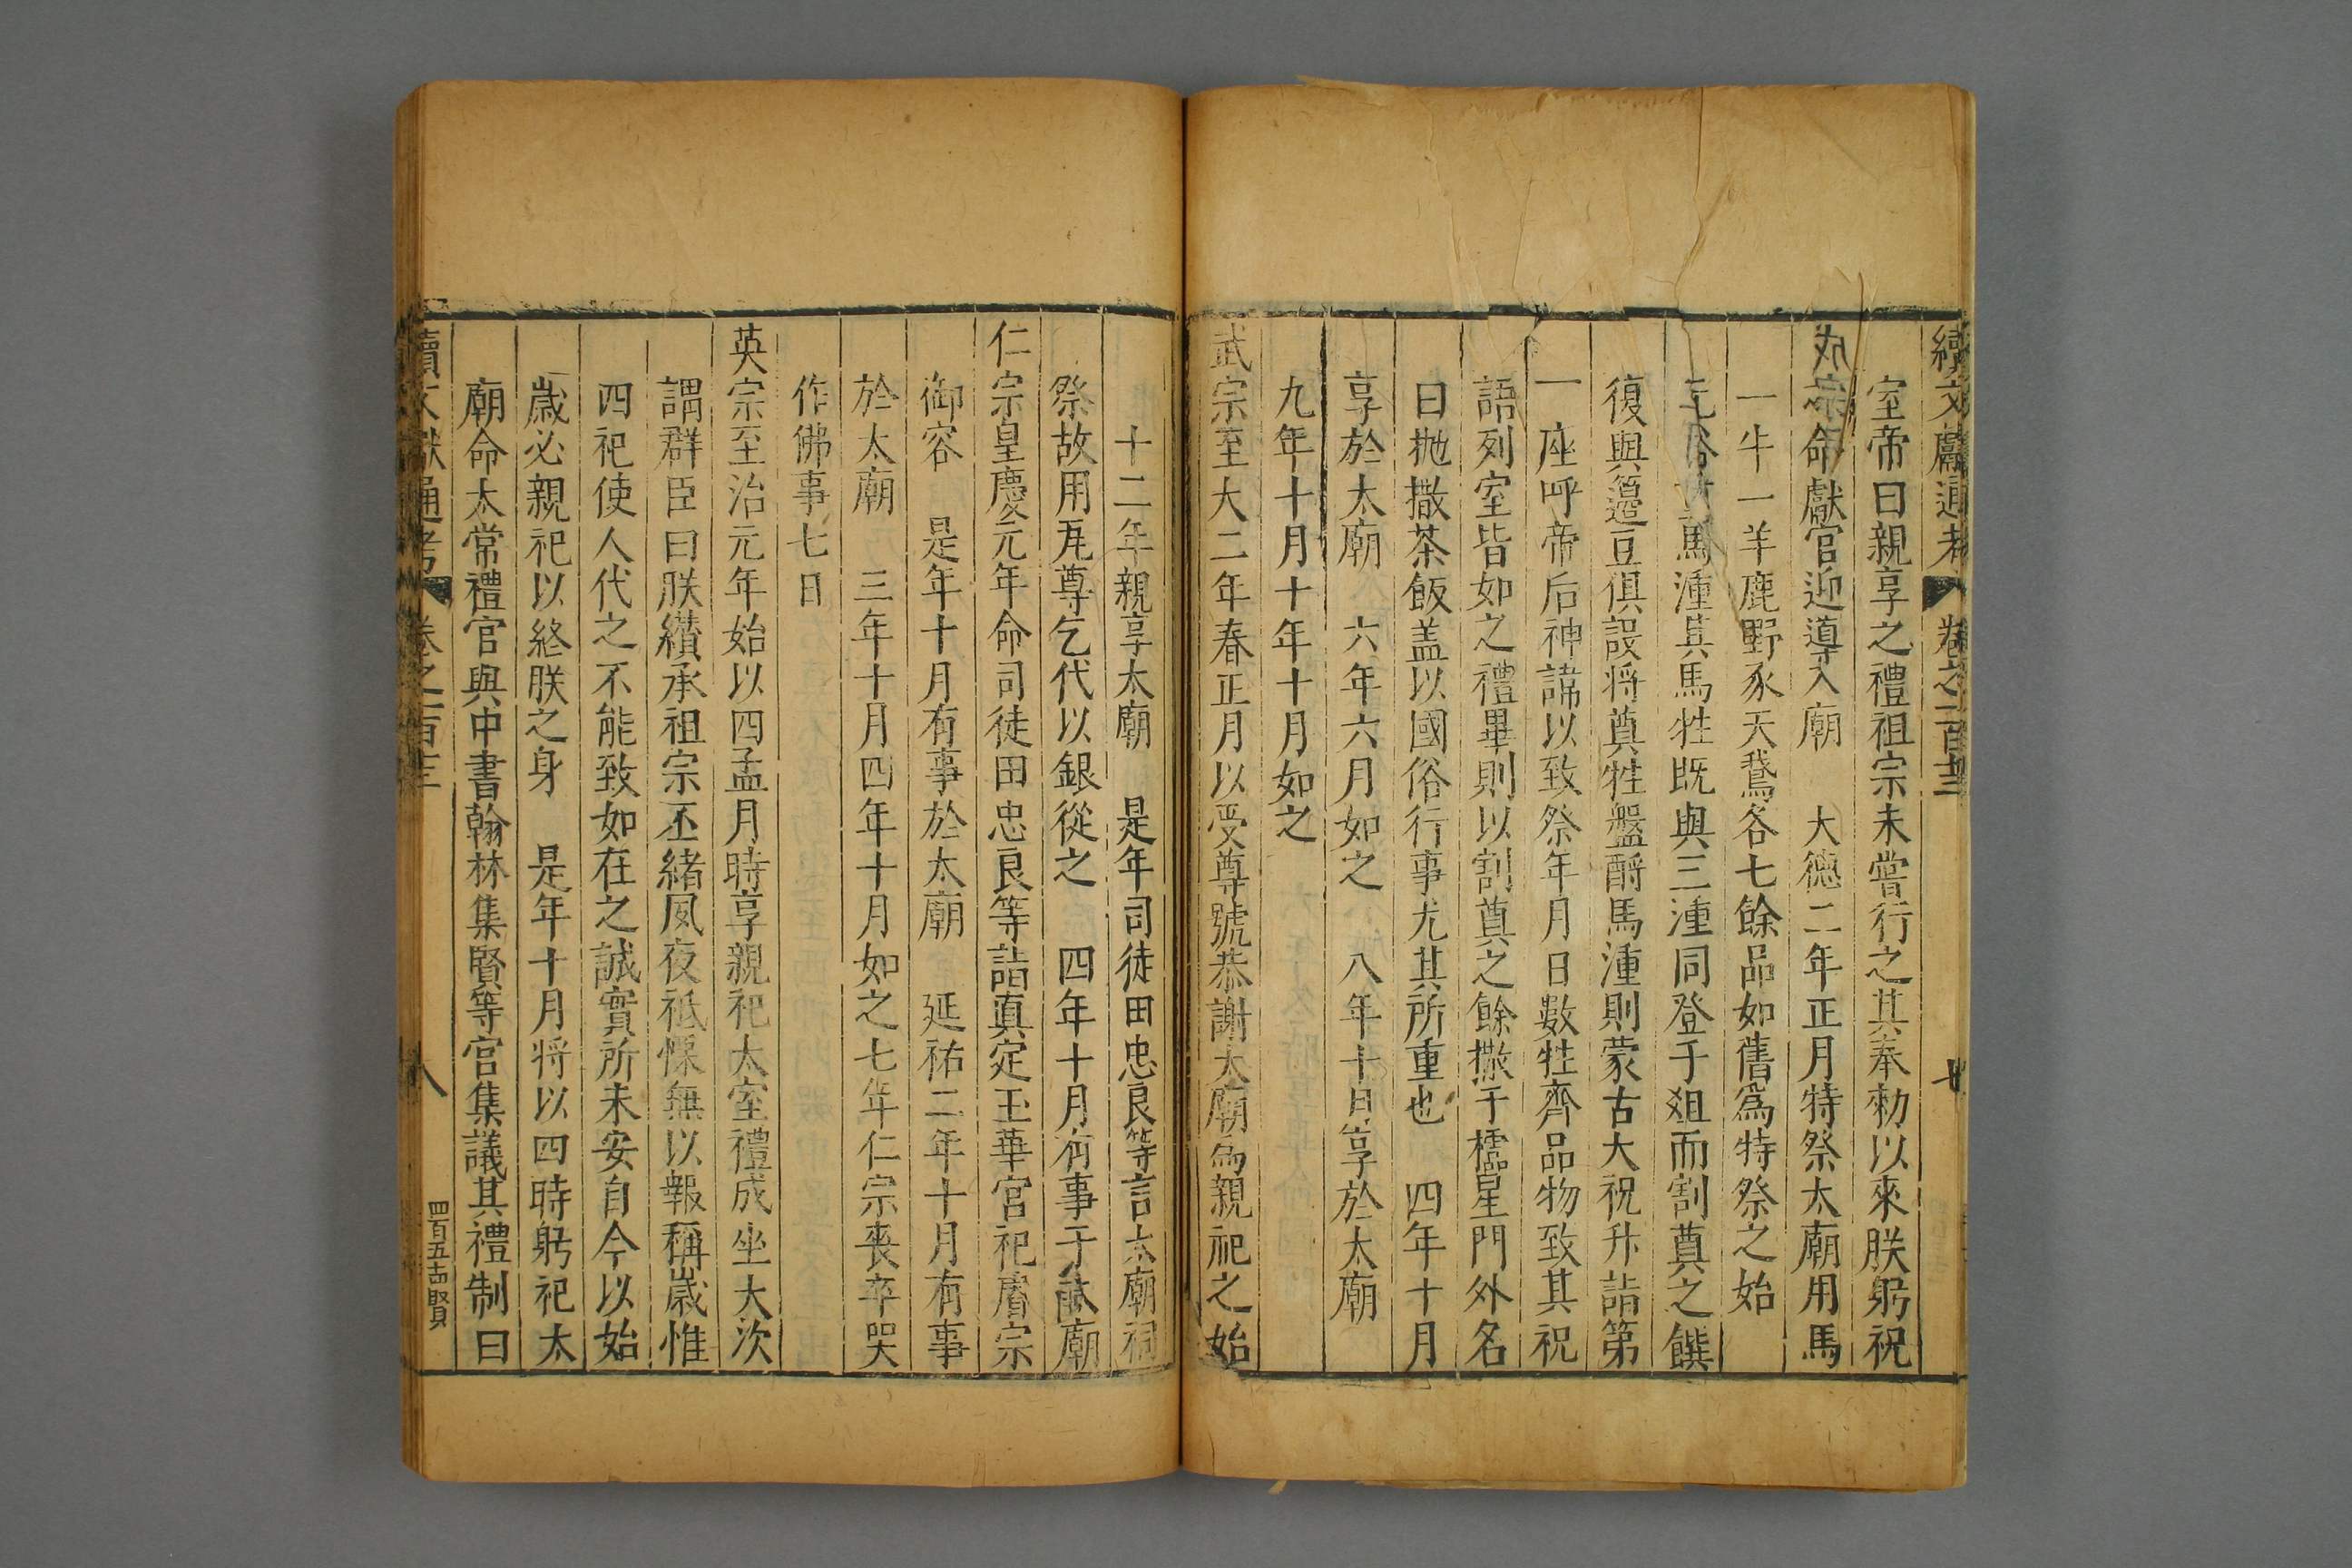 續文獻通考 卷之一百三
室帝曰親享之禮祖宗未嘗行之其奉勑以來朕躬祝
成宗命獻官迎導入廟 大德二年正月特祭太廟用馬
一牛一羊鹿野豕天鵞各七餘品如舊爲特祭之始
元俗 馬湩其馬牲既與三湩同登于俎而割奠之饌
復與籩豆俱設將奠牲盤酹馬湩則蒙古大祝升詣第
一座呼帝后神諱以致祭年月日數牲齊品物致其祝
語列室皆如之禮畢則以割奠之餘撒于櫺星門外名
曰抛撒茶飯盖以國俗行事尤其所重也 四年十月
享於太廟 六年六月如之 八年十日享於太廟
九年十月十年十月如之
武宗至大二年春正月以受尊號恭謝太廟爲親祀之始
十二年親享太廟 是年司徒田忠良等言太廟祠
祭故用瓦尊乞代以銀從之 四年十月有事于太廟
仁宗皇慶元年命司徒田忠良等詣眞定玉華宮祀睿宗
御容 是年十月有事於太廟 延祐二年十月有事
於太廟 三年十月四年十月如之七年仁宗喪卒哭
作佛事七日
英宗至治元年始以四孟月時享親祀太室禮成坐大次
謂群臣曰朕纘承祖宗丕緒夙夜祗慄無以報稱歲惟
四祀使人代之不能致如在之誠實所未安自今以始
歲必親祀以終朕之身 是年十月將以四時躬祀太
廟命太常禮官與中書翰林集賢等官集議其禮制曰
續文獻通考 卷之一百三 八 四百五十四 賢